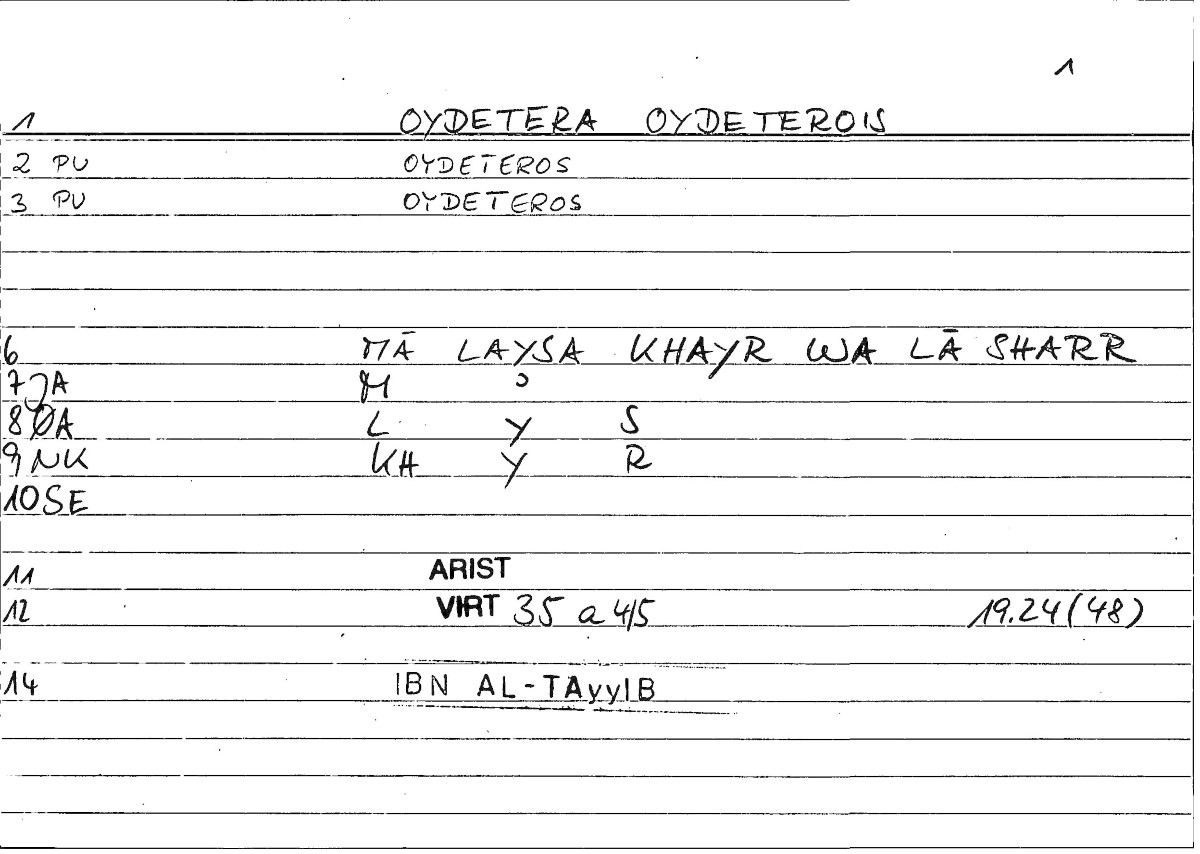 1
1 OYDETERA OYDETEROIS
2 PU OYDETEROS
3 PU OYDETEROS
6 MĀ LAYSA KHAYR WA LĀ SHARR
7 JA M ʾ
8 ØA L Y S
9 NK KH Y R
10 SE
11 ARIST
12 VIRT 35 a 4/5 19.24 (48)
14 IBN AL-TAyyIB